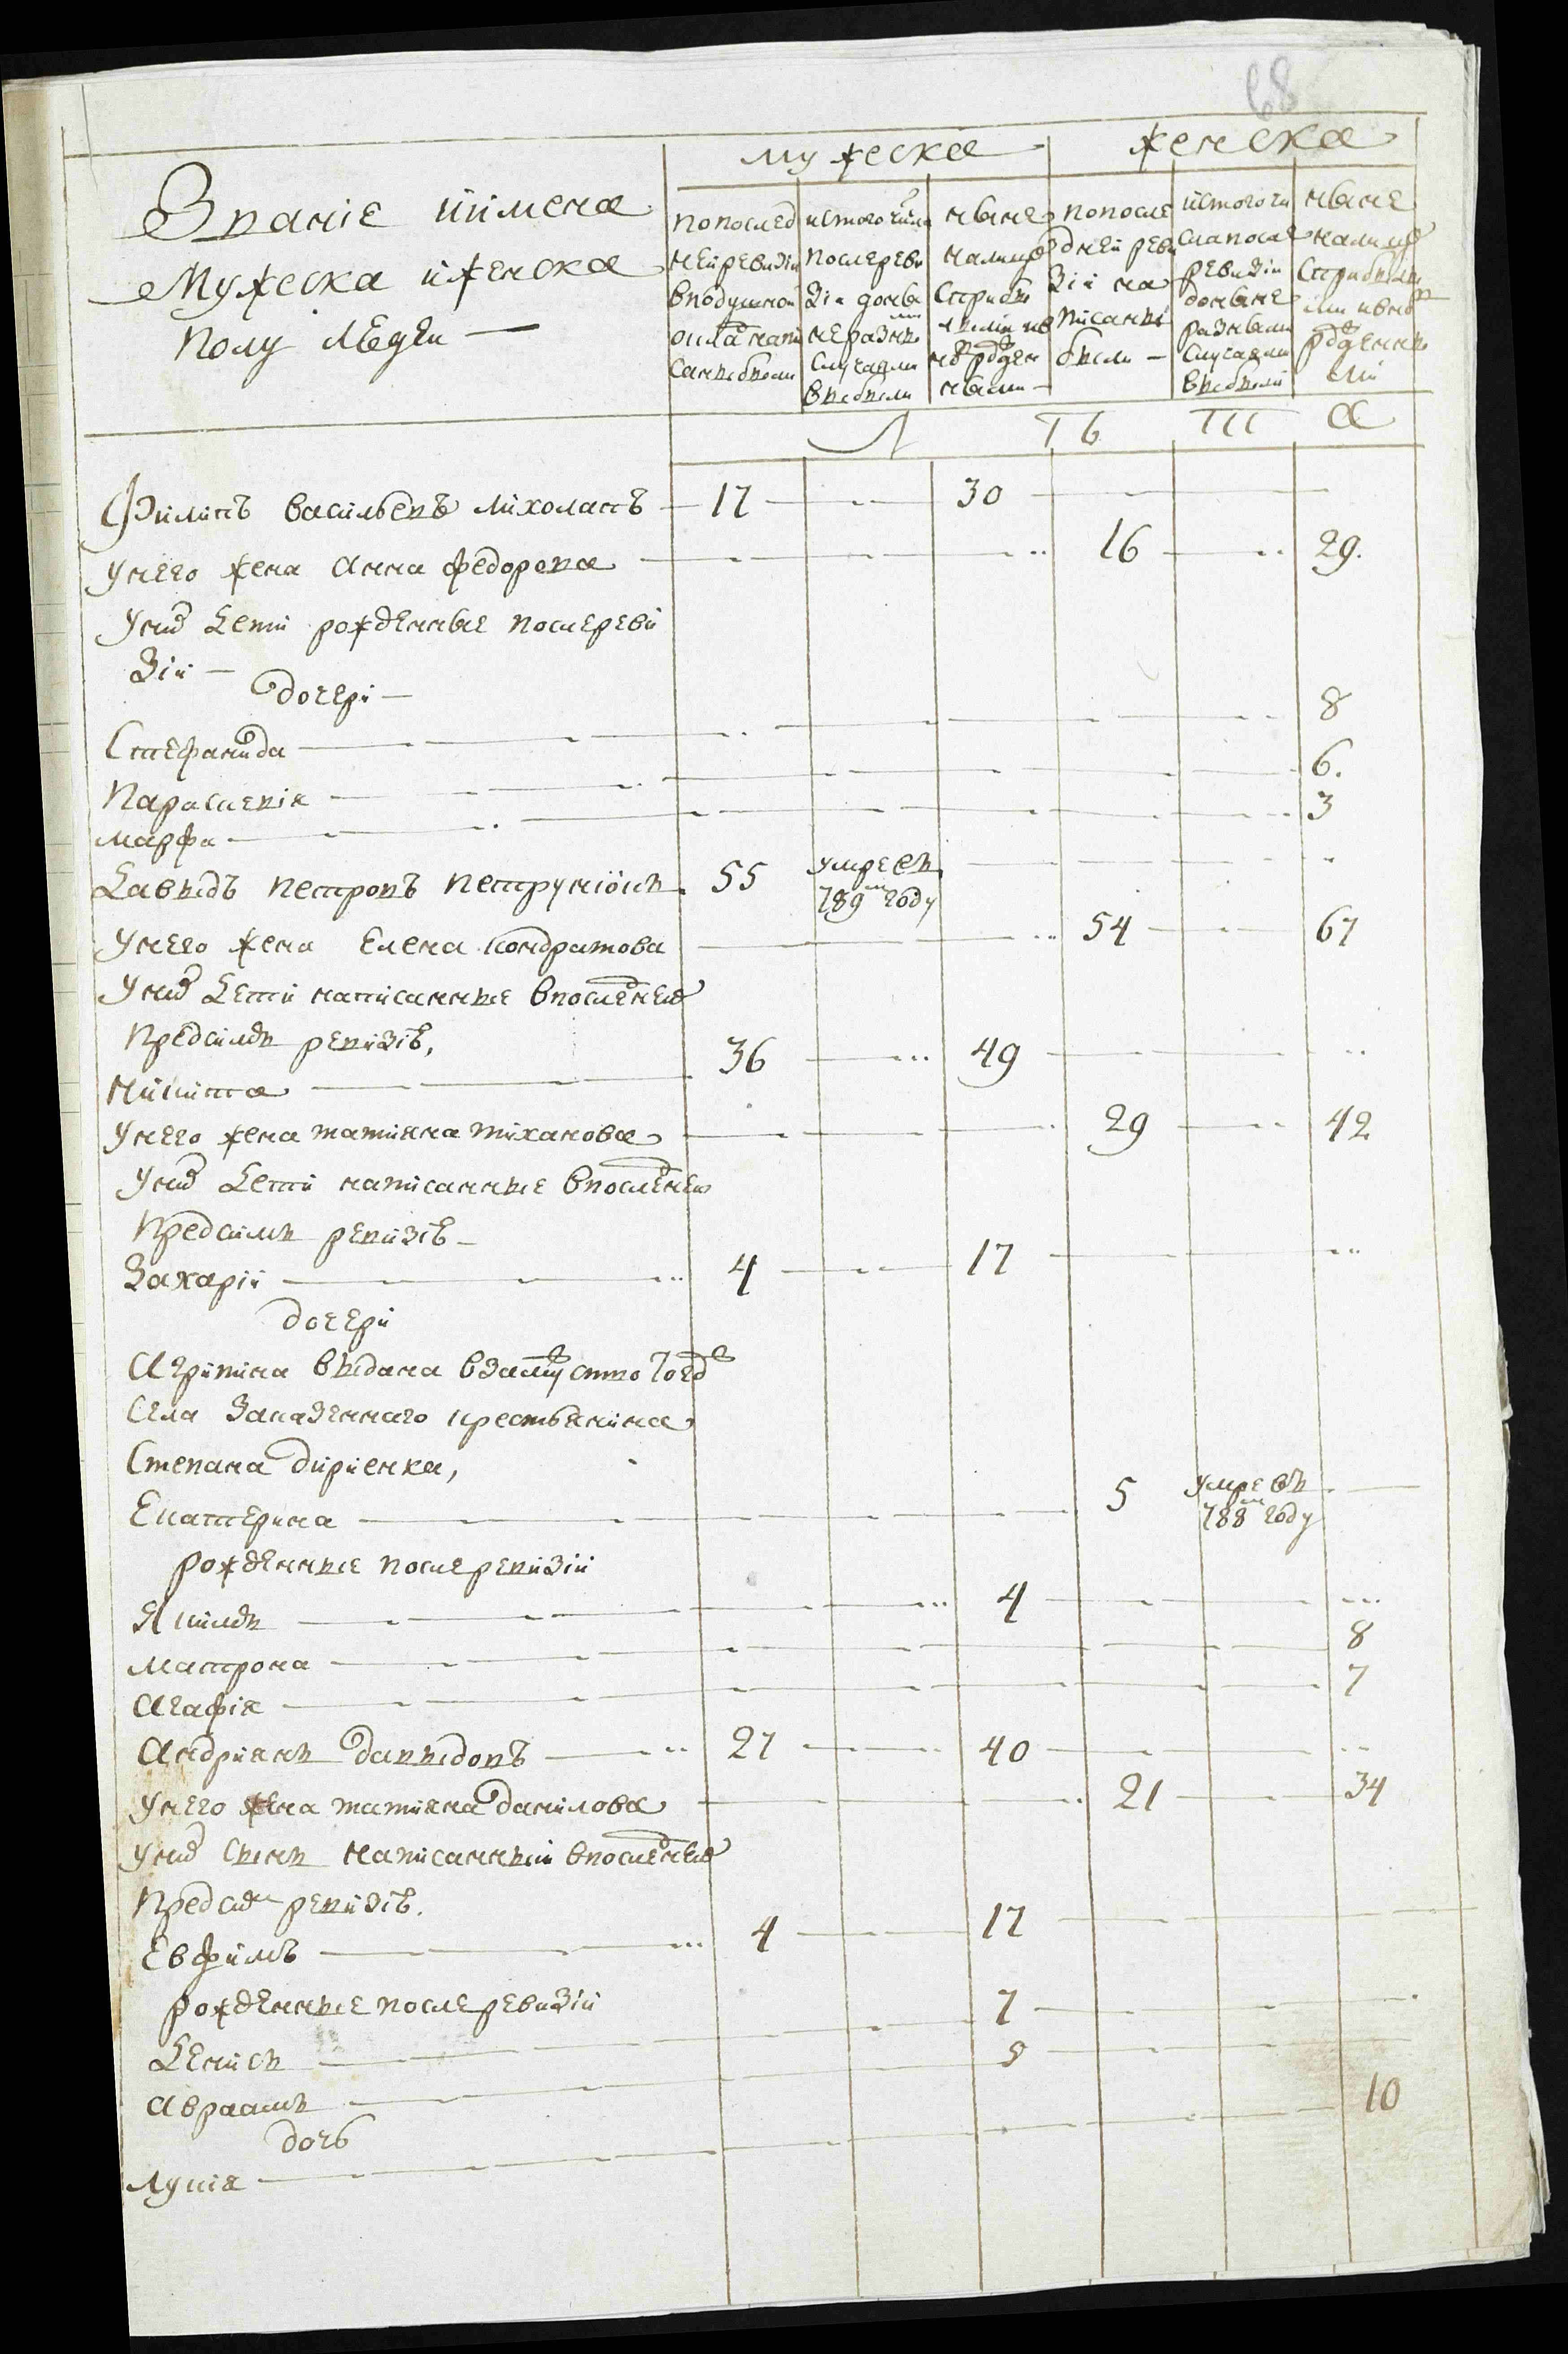 68
Звание и имена
Мужеска и женска
полу людей —
мужеска
женска
по послед
ней ревизии
в подушной
оклад напи
саны были
ис того числа
после реви
зии до ны
не разными
случаями
выбыли
ныне
на лицо
с прибы
лыми и в
нов рожден
ными —
по после
дней реви
зии на
писаны
были —
ис того чи
сла после
ревизии
до ныне
разными
случаями
выбыли
ныне
на лицо
с прибылы
ми и внов
рожденны
ми
Л ТЬ ТІІ а
Филипъ васильевъ михолапъ — 17 — 30
у него жена Анна федорова — 16 — 29.
у них дети рожденные после реви
зіи —
дочери —
Стефанида — 8
Параскевия — 6.
марфа — 3
Давыдъ петровъ петрунiокъ 55 умре въ 789м году
у него жена Елена кондратова — 54 — 67
у них дети написанные в последней
пред симъ ревизіѣ,
Никита — 36 — 49
у него жена татияна тиханова — 29 — 42
у них дети написанные в последней
пред симъ ревизіѣ —
Захарій — 4 — 17
дочери
Агрипина выдана в замуство тогож
села казенного крестьянина
Степана дириенка,
Екатерина — 5 умре въ 788м году
рожденные после ревизіи
Якимъ — 4
матрона — 8
Агафія — 7
Андриянъ давыдовъ — 27 — 40
у него жена татияна данилова — 21 — 34
у них сынъ написанный в последней
пред сим ревизіѣ.
Евфимъ — 4 — 17
рожденные после ревизіи
Денисъ — 7
Авраамъ — 9
дочь
Лукія — 10